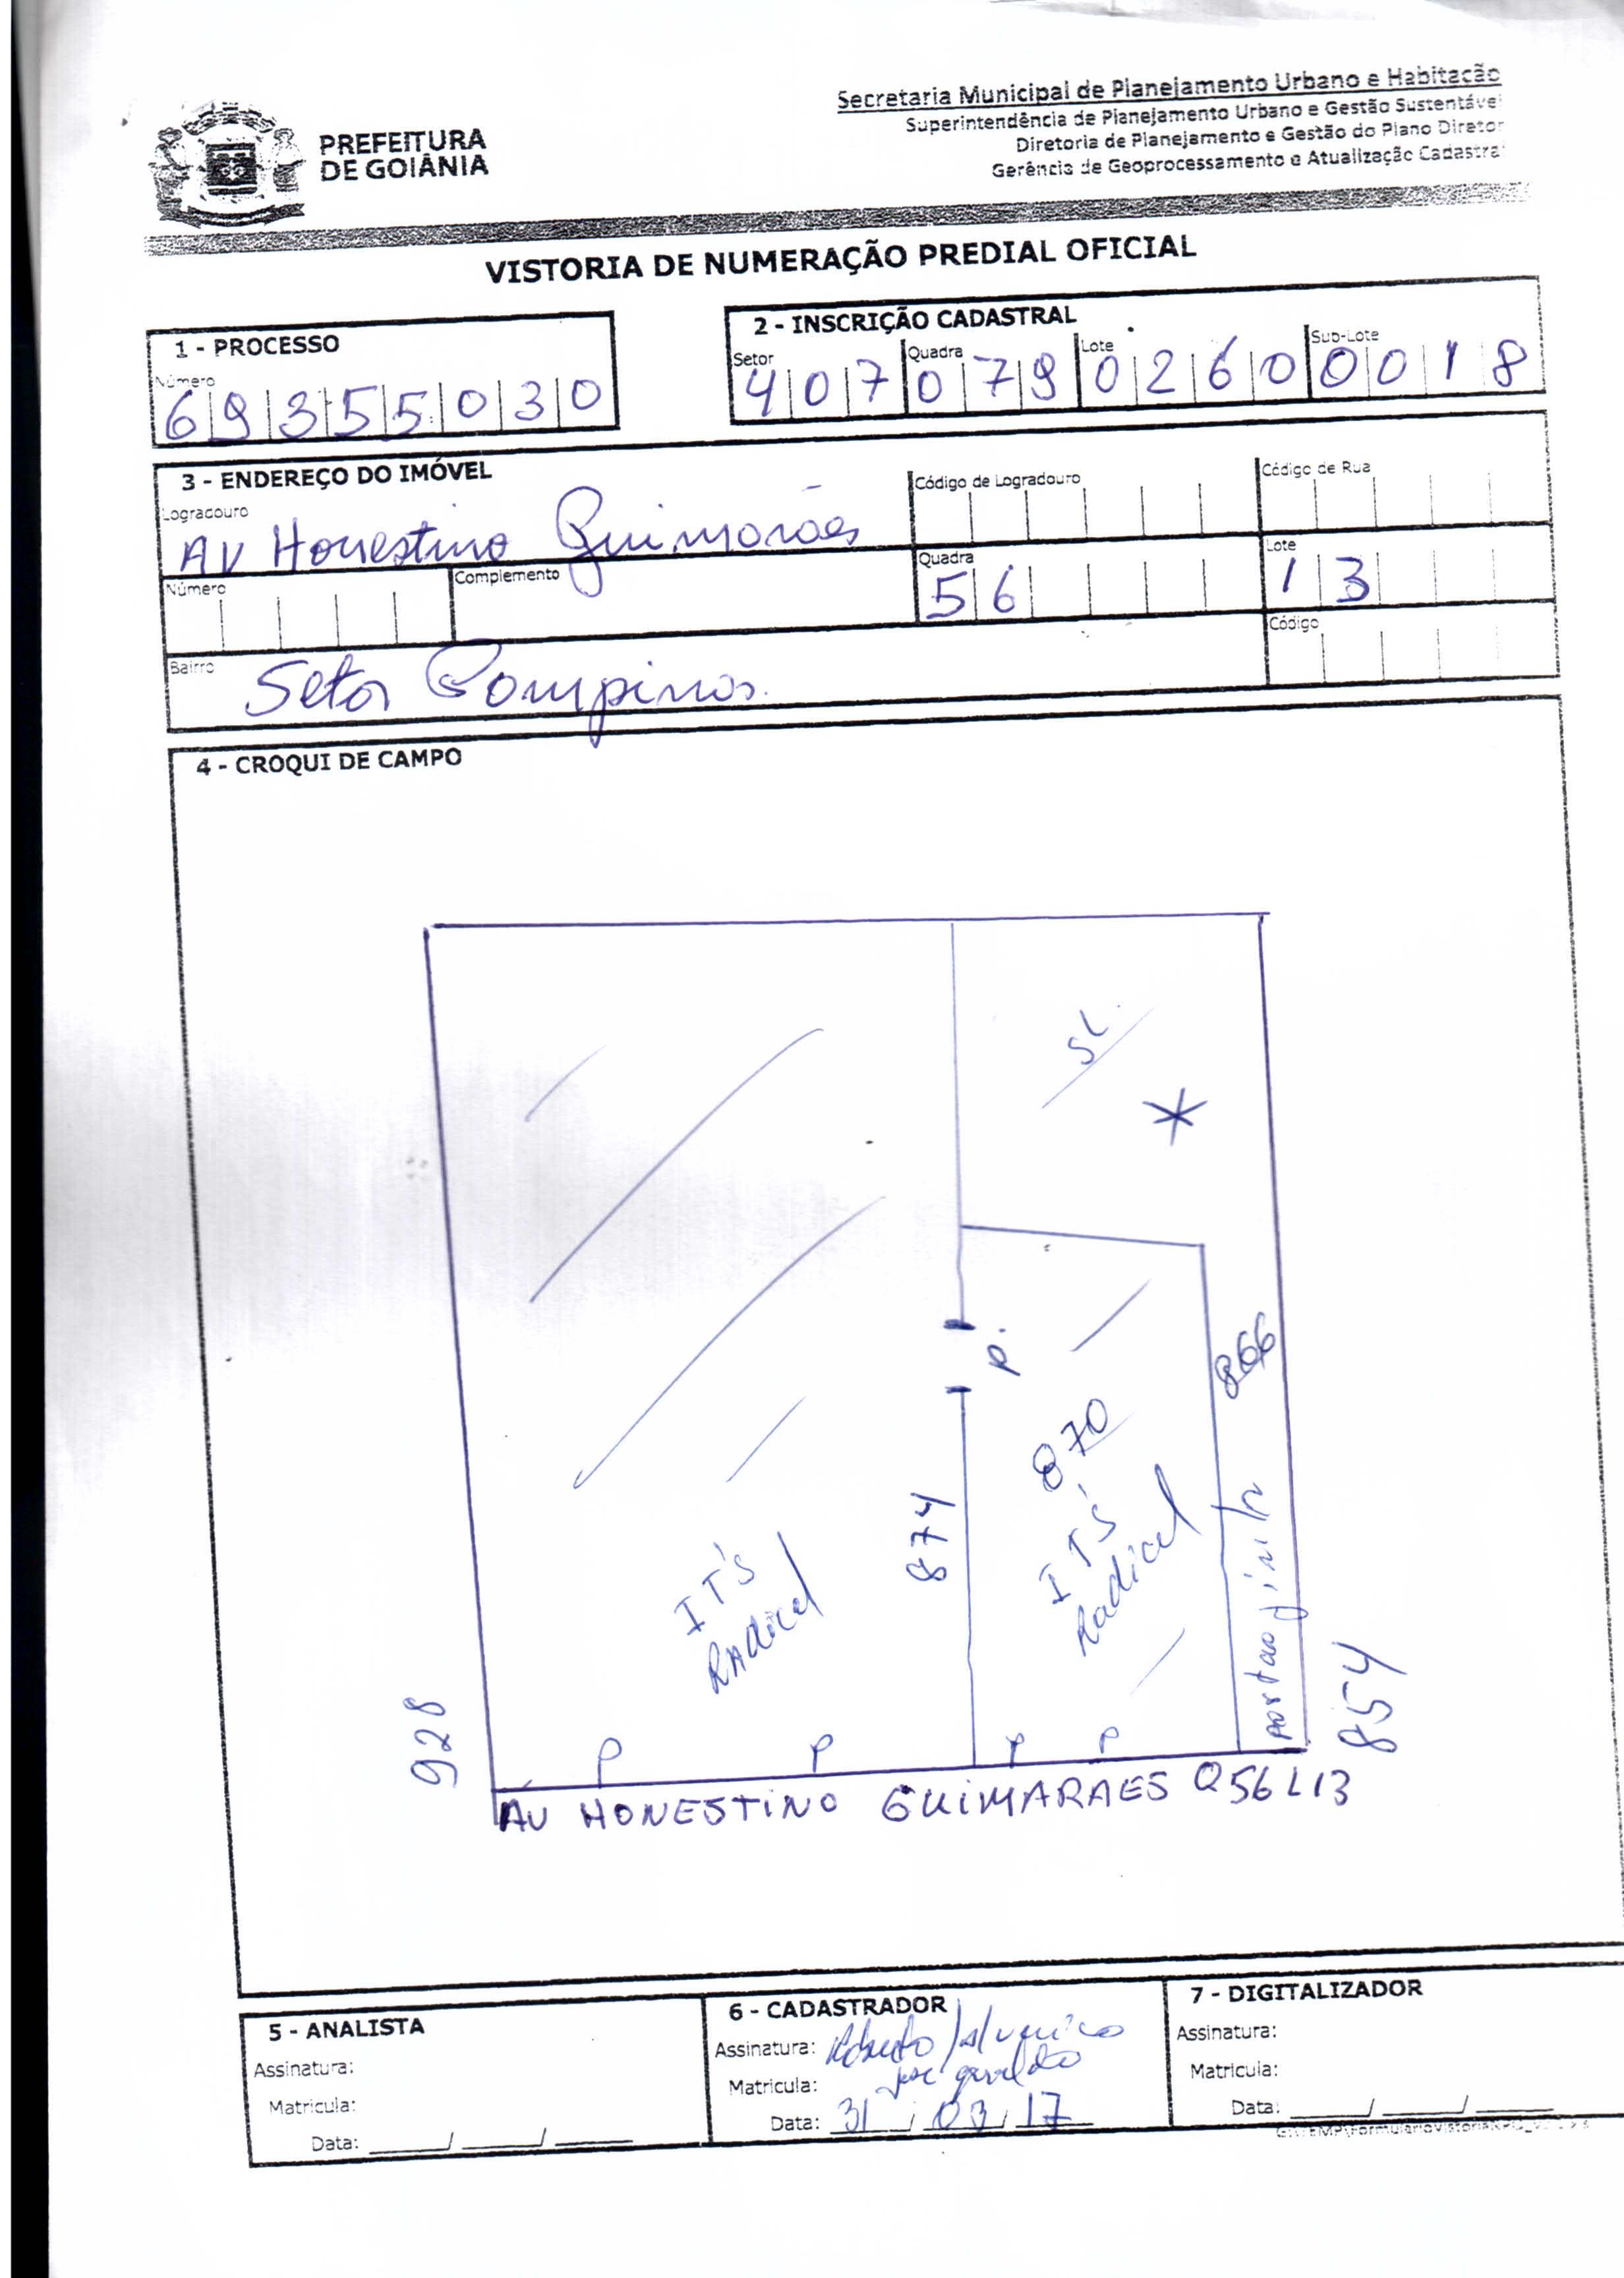 Secretaria Municipal de Planejamento Urbano e Habitação
Superintendência de Planejamento Urbano e Gestão Sustentável
Diretoria de Planejamento e Gestão do Plano Diretor
Gerência de Geoprocessamento e Atualização Cadastral
PREFEITURA
DE GOIÂNIA
VISTORIA DE NUMERAÇÃO PREDIAL OFICIAL
1 - PROCESSO
Número
69355030
2 - INSCRIÇÃO CADASTRAL
Setor Quadra Lote Sub-Lote
407 079 0260 0018
3 - ENDEREÇO DO IMÓVEL
Logradouro Código de Logradouro Código de Rua
Av Honestino Guimarães
Número Complemento Quadra Lote
56 13
Bairro Código
Setor Campinas.
4 - CROQUI DE CAMPO
SL.
*
P.
866
870
IT'S
Radical
874
IT'S
RAdical
portao
928
854
P P P P
AV HONESTINO GUIMARAES Q56 L13
5 - ANALISTA
Assinatura:
Matricula:
Data: ____/____/____
6 - CADASTRADOR
Assinatura: Roberto
jose geraldo
Matricula:
Data: 31/03/17
7 - DIGITALIZADOR
Assinatura:
Matricula:
Data: ____/____/____